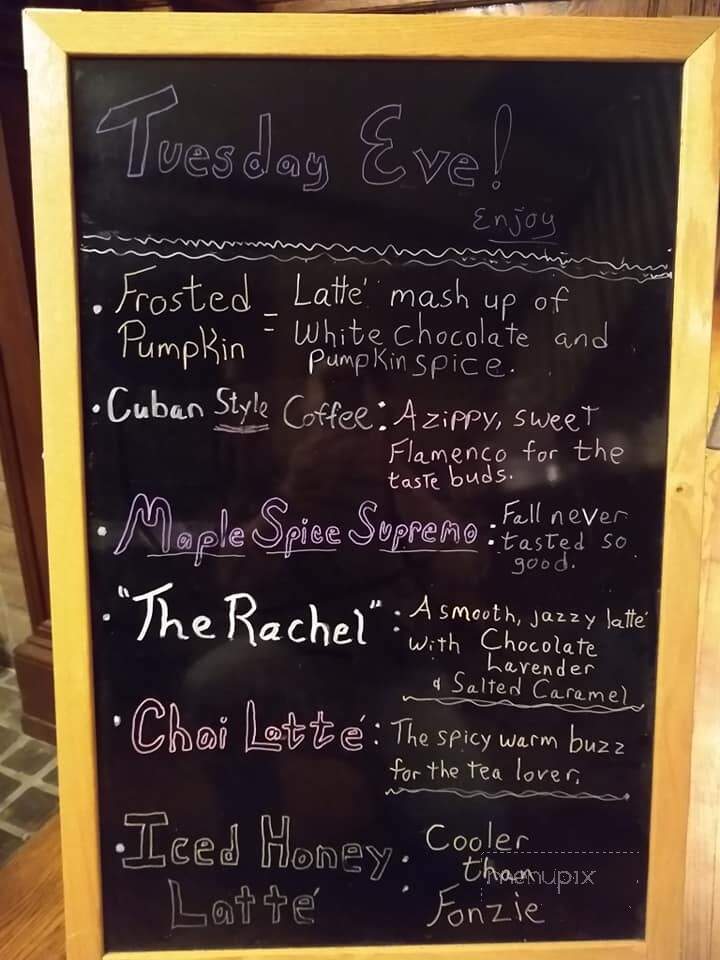 Tuesday Eve!
Enjoy
. Frosted Pumpkin = Latté mash up of
White Chocolate and
Pumpkin spice.
. Cuban Style Coffee: A zippy, sweet
Flamenco for the
taste buds.
. Maple Spice Supremo: Fall never
tasted so
good.
. "The Rachel": A smooth, jazzy latté
with Chocolate
Lavender
& Salted Caramel
. Chai Latté: The spicy warm buzz
for the tea lover.
. Iced Honey Latté: Cooler
than
Fonzie
menupix